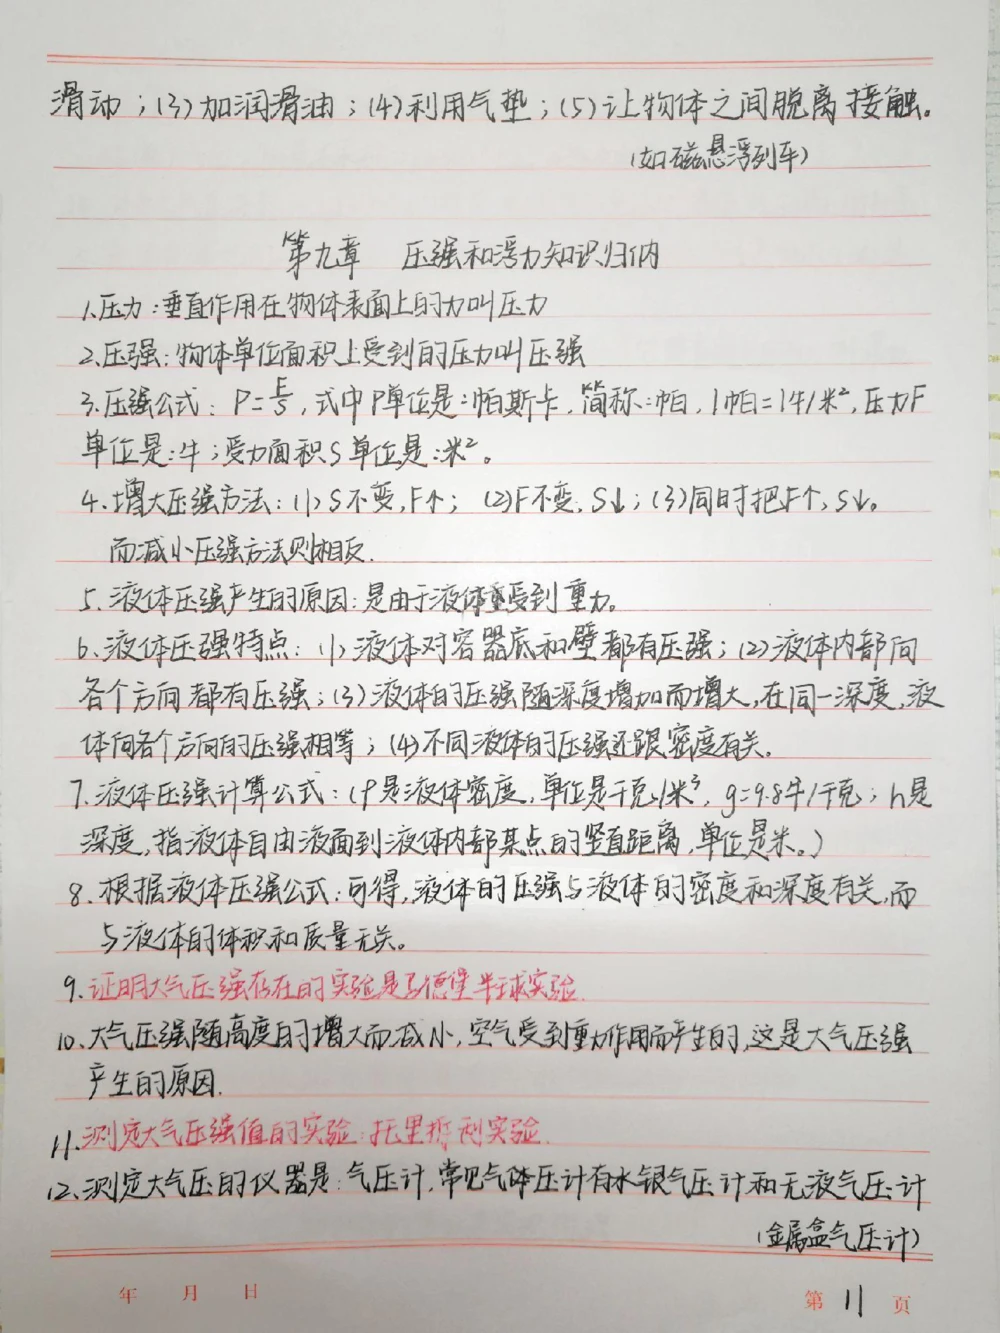 滑动；(3)加润滑油；(4)利用气垫；(5)让物体之间脱离接触。
(如磁悬浮列车)
第九章 压强和浮力知识归纳
1.压力：垂直作用在物体表面上的力叫压力
2.压强：物体单位面积上受到的压力叫压强
3.压强公式：P=F/S，式中P单位是：帕斯卡，简称：帕，1帕=1牛/米²，压力F
单位是：牛；受力面积S单位是：米²。
4.增大压强方法：(1)S不变，F↑；(2)F不变，S↓；(3)同时把F↑，S↓。
而减小压强方法则相反.
5.液体压强产生的原因：是由于液体受到重力。
6、液体压强特点：(1)液体对容器底和壁都有压强；(2)液体内部向
各个方向都有压强；(3)液体的压强随深度增加而增大，在同一深度，液
体向各个方向的压强相等；(4)不同液体的压强还跟密度有关。
7.液体压强计算公式：(ρ是液体密度，单位是千克/米³，g=9.8牛/千克；h是
深度，指液体自由液面到液体内部某点的竖直距离，单位是米。)
8、根据液体压强公式：可得，液体的压强与液体的密度和深度有关，而
与液体的体积和质量无关。
9.证明大气压强存在的实验是马德堡半球实验.
10、大气压强随高度的增大而减小，空气受到重力作用而产生的，这是大气压强
产生的原因.
11.测定大气压强值的实验：托里拆利实验.
12、测定大气压的仪器是：气压计，常见气体压计有水银气压计和无液气压计
(金属盒气压计)
年 月 日
第 11 页